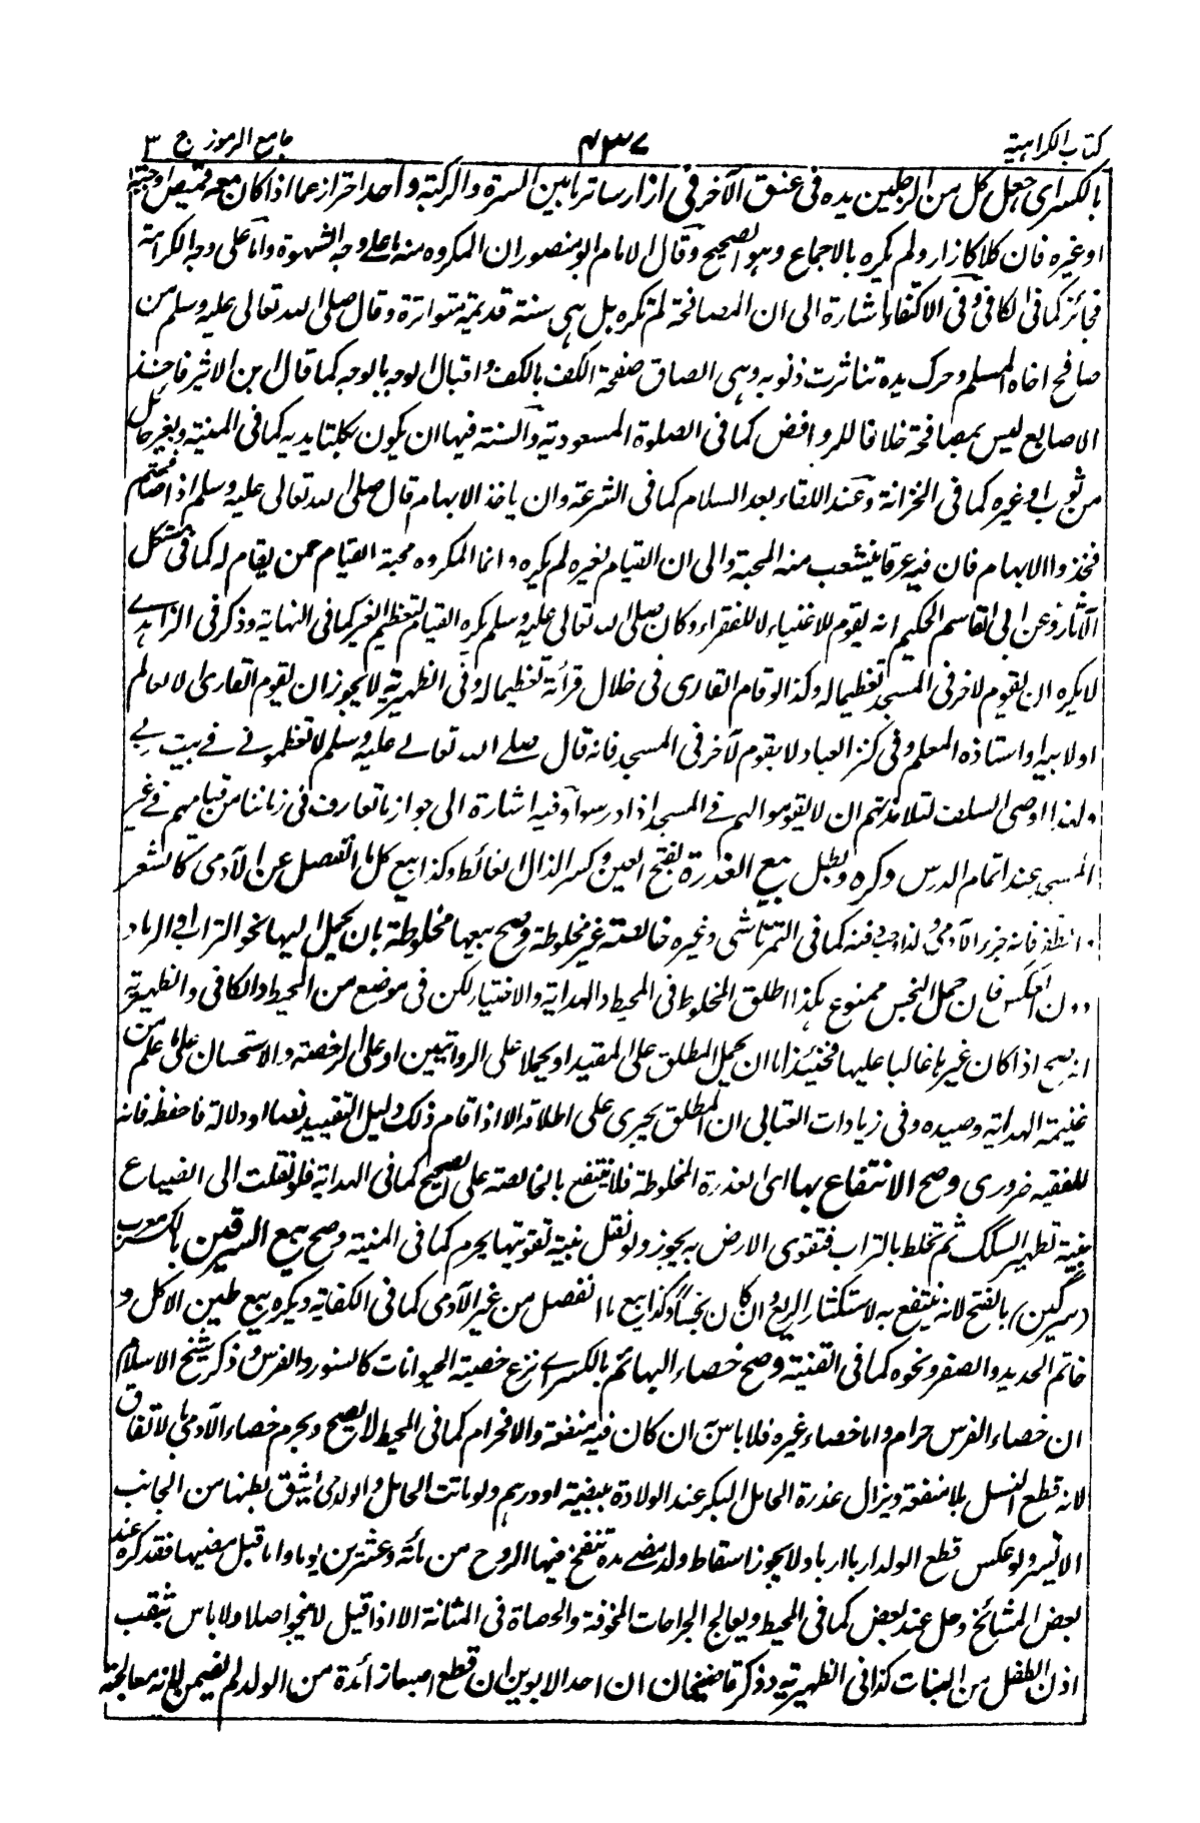 كتاب الكراهية
٤٣٧
جامع الرموز ج ٣
بالكسر اى جعل كل من الرجلين يده فى عنق الآخر فى ازار ساتر ما بين السرة والركبة واحد احترازا عما اذا كان معه قميص او جبة
او غيره فان كلا كازار ولم يكره بالاجماع وهو الصحيح وقال الامام ابو منصور ان المكروه منه ما على وجه الشهوة واما على وجه الكرامة
فجائز كما فى الكافى وفى الاكتفاء اشارة الى ان المصافحة لم تكره بل هى سنة قديمة متواترة وقال صلى الله تعالى عليه وسلم من
صافح اخاه المسلم وحرك يده تناثرت ذنوبه وهى الصاق صفحة الكف بالكف واقبال الوجه بالوجه كما قال ابن الاثير فاخذ
الاصابع ليس بمصافحة خلافا للروافض كما فى الصلوة المسعودية والسنة فيها ان يكون بكلتا يديه كما فى المنية وبغير حائل
من ثوب او غيره كما فى الخزانة وعند اللقاء بعد السلام كما فى الشرعة وان ياخذ الابهام قال صلى الله تعالى عليه وسلم اذا صافحتم
فخذوا الابهام فان فيه عرقا ينشعب منه المحبة والى ان القيام لغيره لم يكره وانما المكروه محبة القيام ممن يقام له كما فى مشكل
الآثار وعن ابى القاسم الحكيم انه يقوم للاغنياء لا للفقراء وكان صلى الله تعالى عليه وسلم يكره القيام لتعظيم الغير كما فى النهاية وذكر فى الزاهدى
لا يكره ان يقوم لاخر فى المسجد تعظيما له وكذا لو قام القارى فى خلال قرأته تعظيما له وفى الظهيرية لا يجوز ان يقوم القارى الا لعالم
او لابيه او استاذه المعلم وفى كنز العباد لا يقوم لآخر فى المسجد فانه قال صلى الله تعالى عليه وسلم لا تعظمونى فى بيت ربى
ولهذا اوصى السلف لتلامذتهم ان لا يقوموا لهم فى المسجد اذا درسوا وفيه اشارة الى جواز ما تعارف فى زماننا من قيامهم فى غير
المسجد عند اتمام الدرس وكره وبطل بيع العذرة بفتح العين وكسر الذال الغائط وكذا بيع كل ما انفصل عن الآدمى كالشعر
والظفر فانه جزء الآدمى ولذا وجب دفنه كما فى التمرتاشى وغيره خالصة غير مخلوطة وصح بيعها مخلوطة بان يحمل اليها نحو التراب او الرماد
دون العكس فان حمل النجس ممنوع هكذا اطلق المخلوط فى المحيط والهداية والاختيار لكن فى موضع من المحيط والكافى والظهيرية
انه يصح اذا كان غيرها غالبا عليها فحينئذ اما ان يحمل المطلق على المقيد او يحملا على الروايتين او على الرخصة والاستحسان على ما علم من
غنيمة الهداية وصيده وفى زيادات العتابى ان المطلق يجرى على اطلاقه الا اذا قام ذلك دليل التقييد نصا او دلالة فاحفظه فانه
للفقيه ضرورى وصح الانتفاع بها اى العذرة المخلوطة فلا ينتفع بالخالصة على الصحيح كما فى الهداية فلو نقلت الى الضياع
بنية تطهير السكك ثم تخلط بالتراب فتقوى الارض به يجوز ولو نقل بنية تقويتها يحرم كما فى المنية وصح بيع السرقين بالكسر معرب
(سرگين) بالفتح لانه ينتفع به لاستكثار الريع وان كان نجسا وكذا بيع ما انفصل من غير الآدمى كما فى الكفاية ويكره بيع طين الاكل و
خاتم الحديد والصفر ونحوه كما فى القنية وصح خصاء البهائم بالكسر اى نزع خصية الحيوانات كالسنور والفرس وذكر شيخ الاسلام
ان خصاء الفرس حرام واما خصاء غيره فلا باس ان كان فيه منفعة والا فحرام كما فى المحيط لا يصح ويحرم خصاء الآدمى بالاتفاق
لانه قطع النسل بلا منفعة ويزال عذرة الحامل البكر عند الولادة ببيضة او درهم ولو ماتت الحامل والولد حى يشق بطنها من الجانب
الايسر ولو عكس قطع الولد اربا اربا ولا يجوز اسقاط ولد مضى مدة تنفخ فيها الروح من مائة وعشرين يوما واما قبل مضيها فقد كره عند
بعض المشائخ وحل عند بعض كما فى المحيط ويعالج الجراحات المخوفة والحصاة فى المثانة الا اذا قيل لا ينجو اصلا ولا باس بثقب
اذن الطفل من البنات كذا فى الظهيرية وذكر قاضيخان ان احد الابوين ان قطع اصبعا زائدة من الولد لم يضمن لانه معالجة